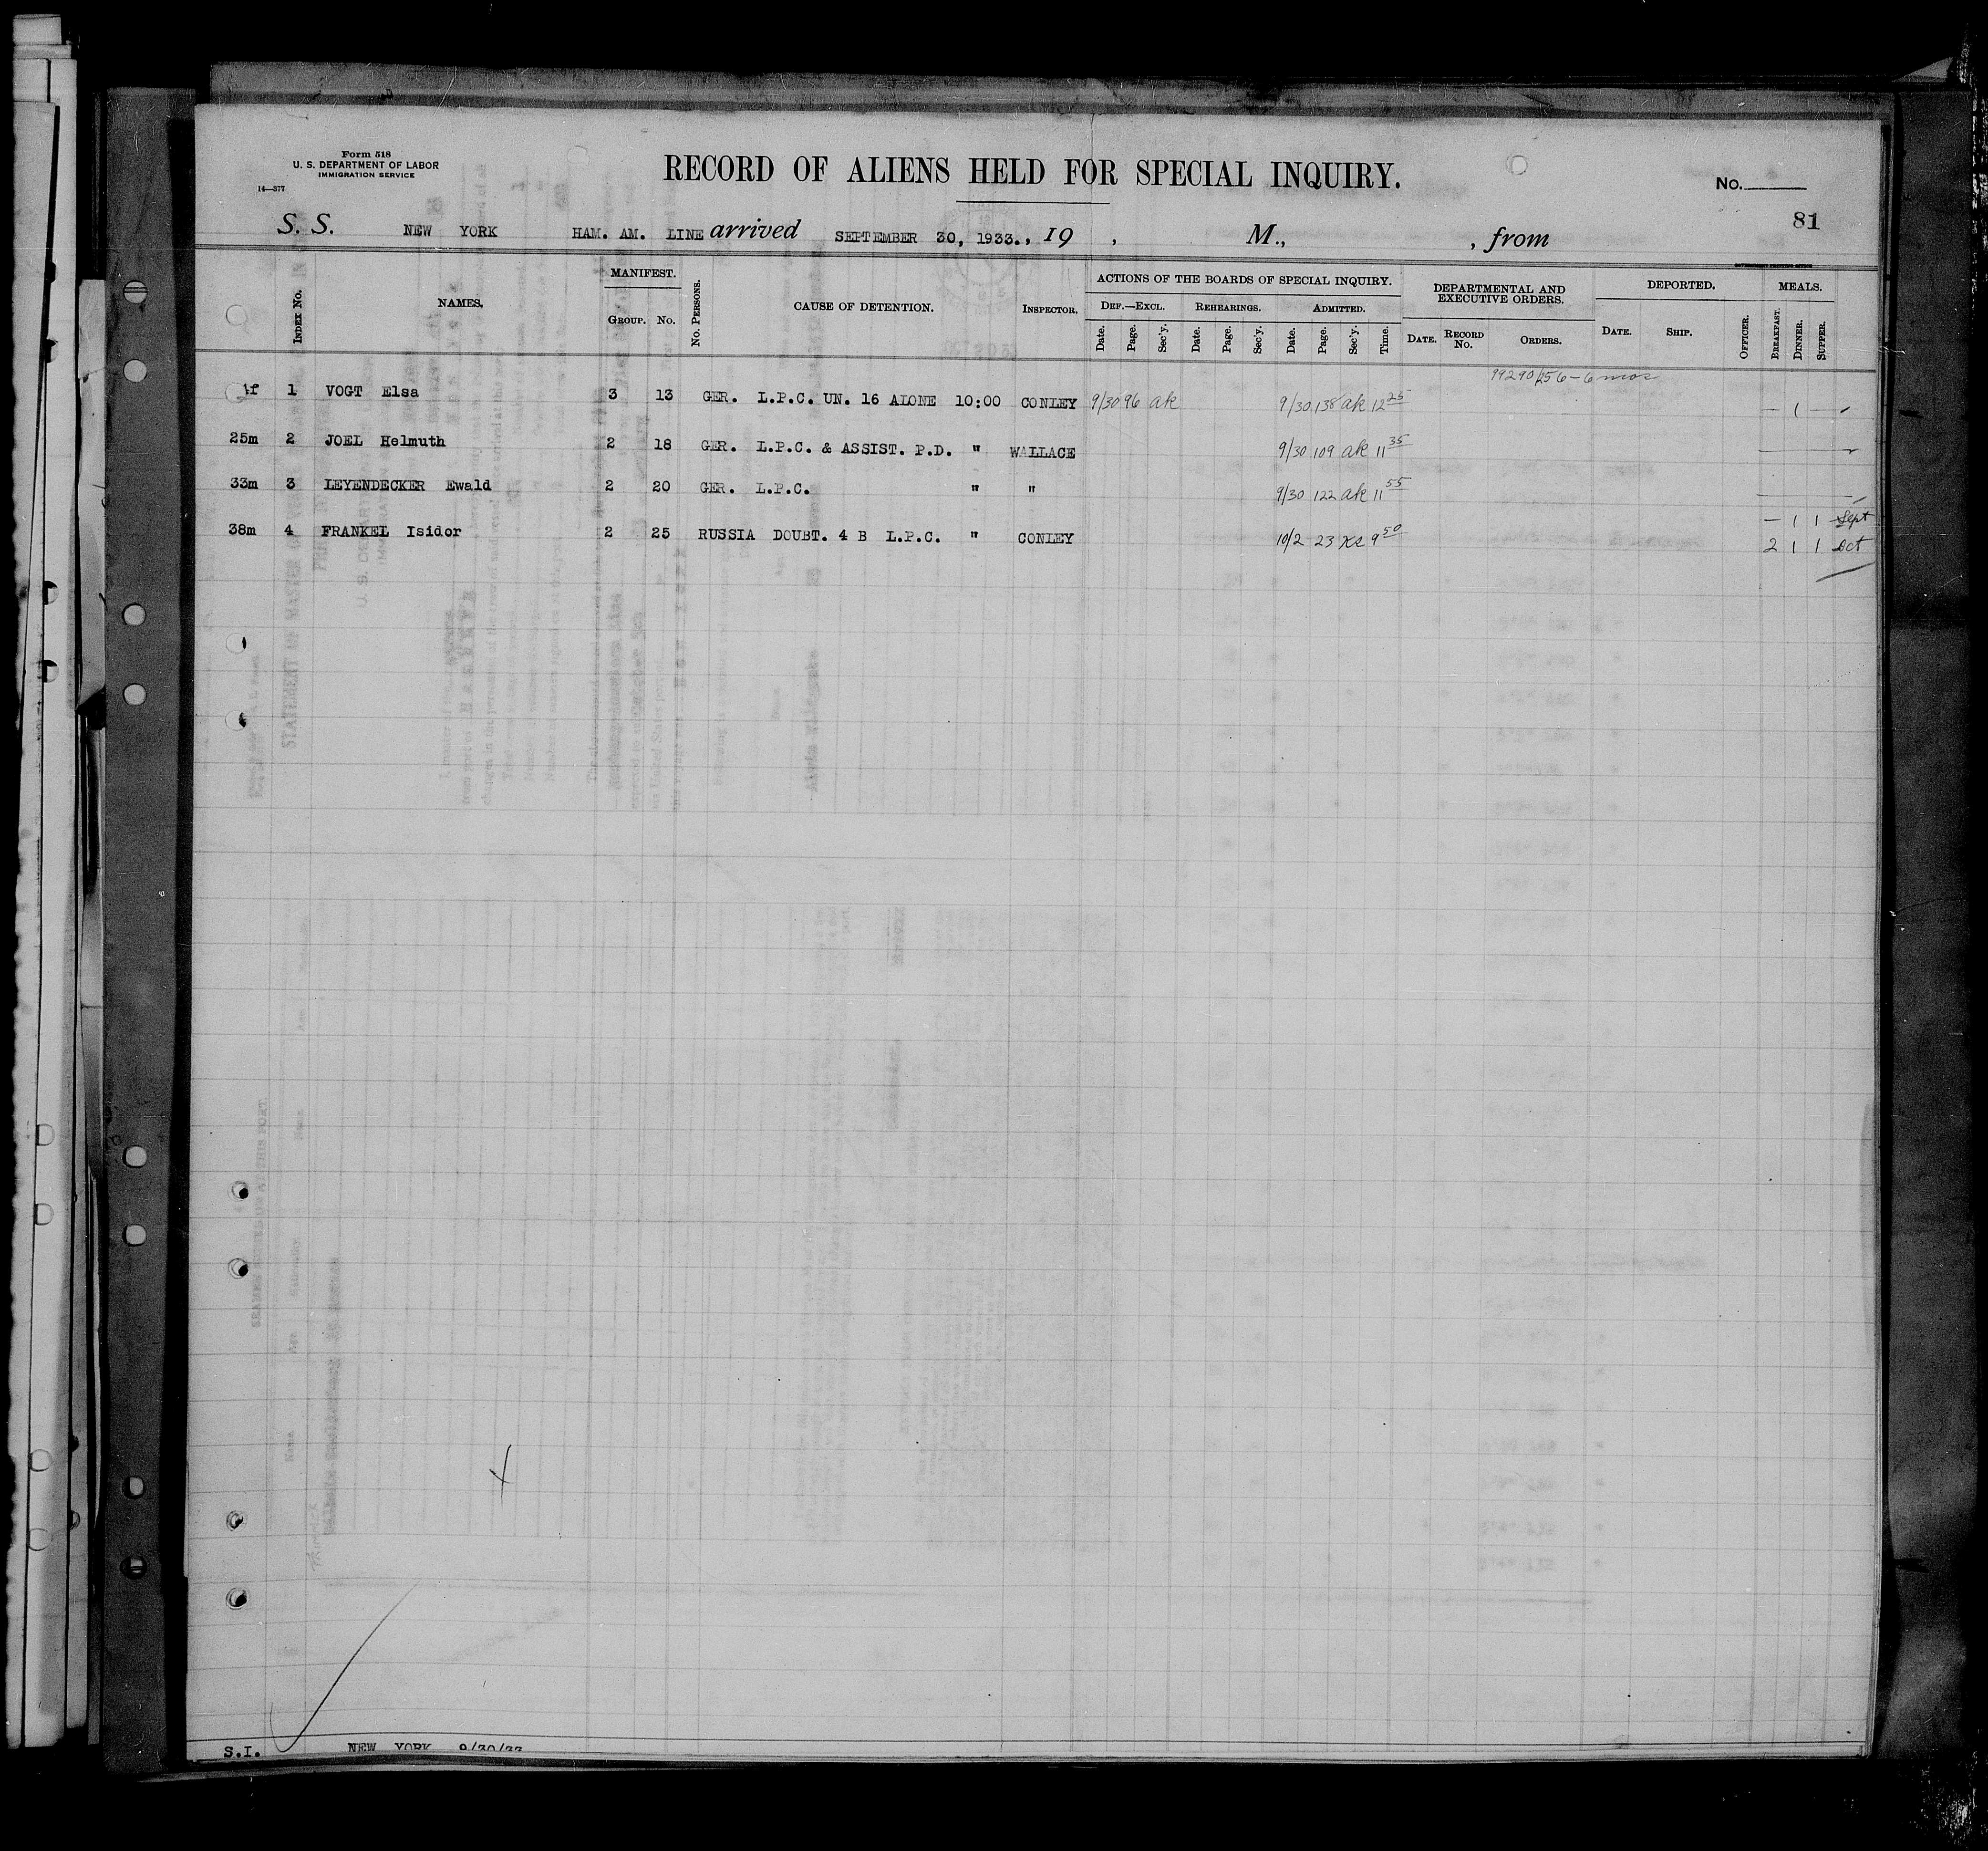 Form 518
U. S. DEPARTMENT OF LABOR
IMMIGRATION SERVICE
14—377
RECORD OF ALIENS HELD FOR SPECIAL INQUIRY.
No.
81
S. S. NEW YORK HAM. AM. LINE arrived SEPTEMBER 30, 1933., 19 , M., , from
INDEX No. NAMES. MANIFEST. GROUP. No. No. PERSONS. CAUSE OF DETENTION. INSPECTOR. ACTIONS OF THE BOARDS OF SPECIAL INQUIRY. DEPARTMENTAL AND EXECUTIVE ORDERS. DEPORTED. MEALS.
DEF.—EXCL. REHEARINGS. ADMITTED.
Date. Page. Sec'y. Date. Page. Sec'y. Date. Page. Sec'y. Time. DATE. RECORD No. ORDERS. DATE. SHIP. OFFICER. BREAKFAST. DINNER. SUPPER.
99290/256-6 mos
1 VOGT Elsa 3 13 GER. L.P.C. UN. 16 ALONE 10:00 CONLEY 9/30 96 ak 9/30 138 ak 12 25 — 1 —
25m 2 JOEL Helmuth 2 18 GER. L.P.C. & ASSIST. P.D. " WALLACE 9/30 109 ak 11 35
33m 3 LEYENDECKER Ewald 2 20 GER. L.P.C. " " 9/30 122 ak 11 55
— 1 1 Sept
38m 4 FRANKEL Isidor 2 25 RUSSIA DOUBT. 4 B L.P.C. " CONLEY 10/2 23 9 50 2 1 1 Oct
S.I. NEW YORK 9/30/33